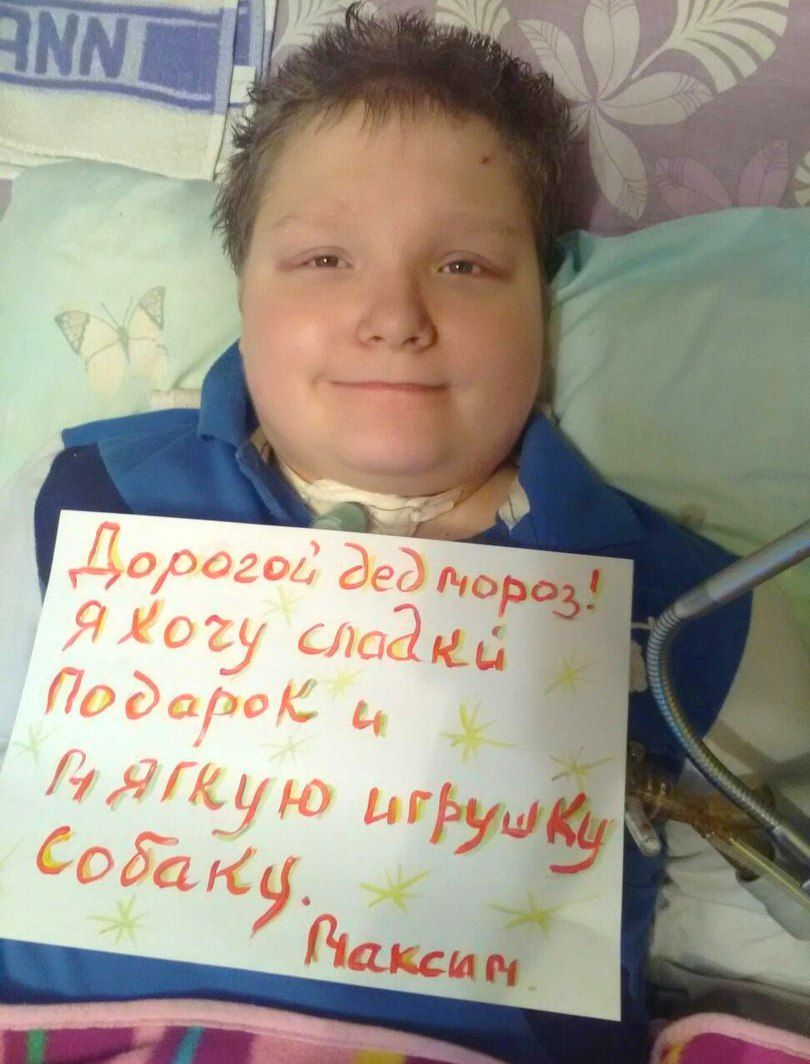 ANN
Дорогой дед мороз!
Я хочу сладкий
Подарок и
мягкую игрушку
собаку.
Максим.